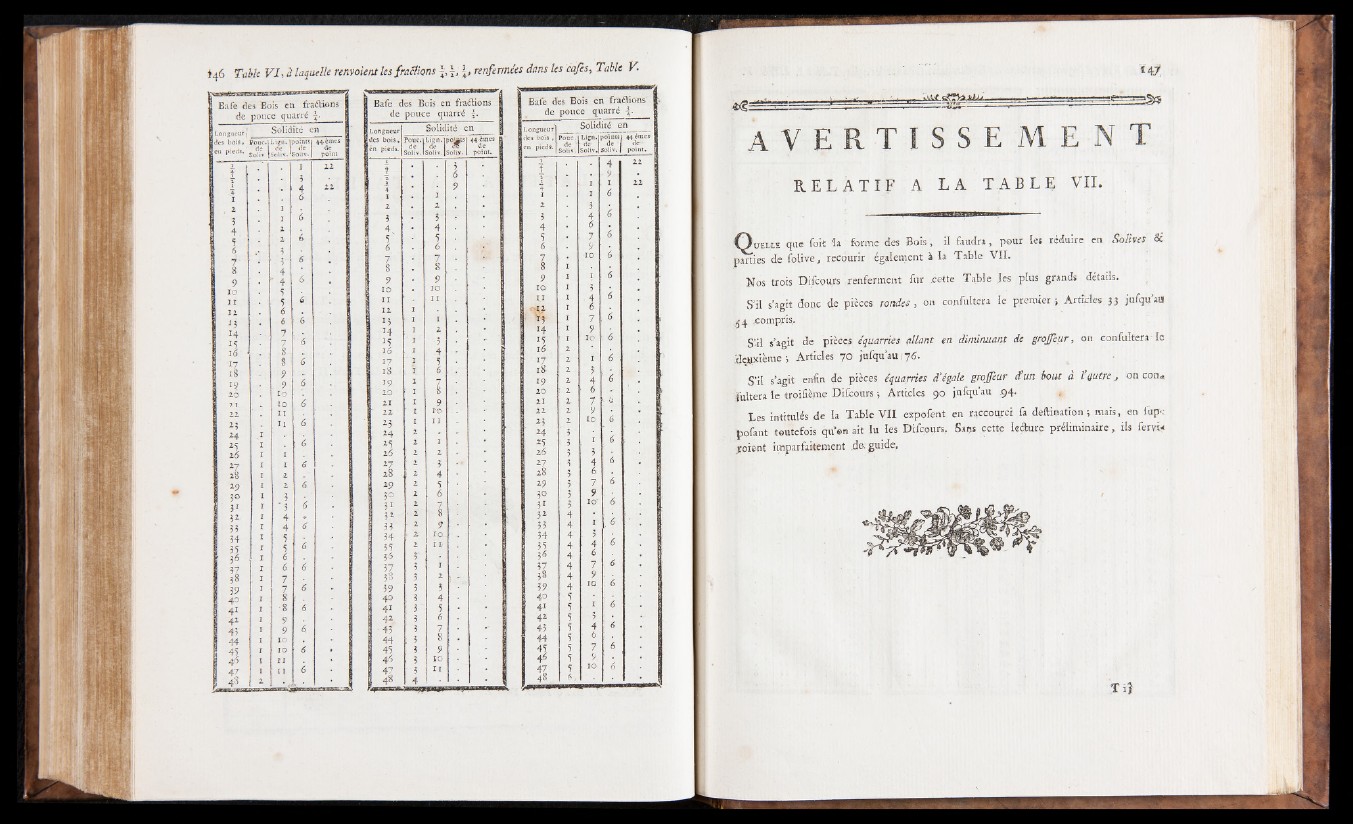 146 Table VI, à laquelle renvoient les fractions ¼, ½, ¾, renfermées dans les caſes, Table V.
Baſe des Bois en fractions
de pouce quarré ¼.
Longueur des bois, en pieds. Solidité en
Pouc. de Soliv. Lign. de Soliv. points de Soliv. 44 èmes de point
¼ 1 22
½ 3
¾ 4 22
1 6
2 1
3 1 6
4 2
5 2 6
6 3
7 3 6
8 4
9 4 6
10 5
11 5 6
12 6
13 6 6
14 7
15 7 6
16 8
17 8 6
18 9
19 9 6
20 10
21 10 6
22 11
23 11 6
24 1
25 1 6
26 1 1
27 1 1 6
28 1 2
29 1 2 6
30 1 3
31 1 3 6
32 1 4
33 1 4 6
34 1 5
35 1 5 6
36 1 6
37 1 6 6
38 1 7
39 1 7 6
40 1 8
41 1 8 6
42 1 9
43 1 9 6
44 1 10
45 1 10 6
46 1 11
47 1 11 6
48 2
Baſe des Bois en fractions
de pouce quarré ½.
Longueur des bois, en pieds. Solidité en
Pouc. de Soliv. Lign. de Soliv. points de Soliv. 44 èmes de point.
¼ 3
½ 6
¾ 9
1 1
2 2
3 3
4 4
5 5
6 6
7 7
8 8
9 9
10 10
11 11
12 1
13 1 1
14 1 2
15 1 3
16 1 4
17 1 5
18 1 6
19 1 7
20 1 8
21 1 9
22 1 10
23 1 11
24 2
25 2 1
26 2 2
27 2 3
28 2 4
29 2 5
30 2 6
31 2 7
32 2 8
33 2 9
34 2 10
35 2 11
36 3
37 3 1
38 3 2
39 3 3
40 3 4
41 3 5
42 3 6
43 3 7
44 3 8
45 3 9
46 3 10
47 3 11
48 4
Baſe des Bois en fractions
de pouce quarré ¾.
Longueur des bois, en pieds. Solidité en
Pouc. de Soliv. Lign. de Soliv. points de Soliv. 44 èmes de point.
¼ 4 22
½ 9
¾ 1 1 22
1 1 6
2 3
3 4 6
4 6
5 7 6
6 9
7 10 6
8 1
9 1 1 6
10 1 3
11 1 4 6
12 1 6
13 1 7 6
14 1 9
15 1 10 6
16 2
17 2 1 6
18 2 3
19 2 4 6
20 2 6
21 2 7 6
22 2 9
23 2 10 6
24 3
25 3 1 6
26 3 3
27 3 4 6
28 3 6
29 3 7 6
30 3 9
31 3 10 6
32 4
33 4 1 6
34 4 3
35 4 4 6
36 4 6
37 4 7 6
38 4 9
39 4 10 6
40 5
41 5 1 6
42 5 3
43 5 4 6
44 5 6
45 5 7 6
46 5 9
47 5 10 6
48 6
147
AVERTISSEMENT
RELATIF A LA TABLE VII.
QUELLE que ſoit la forme des Bois, il faudra, pour les réduire en Solives &
parties de ſolive, recourir également à la Table VII.
Nos trois Diſcours renferment ſur cette Table les plus grands détails.
S'il s'agit donc de pièces rondes, on conſultera le premier; Articles 33 juſqu'au
54 compris.
S'il s'agit de pièces équarries allant en diminuant de groſſeur, on conſultera le
deuxième; Articles 70 juſqu'au 76.
S'il s'agit enfin de pièces équarries d'égale groſſeur d'un bout à l'autre, on con-
ſultera le troiſième Diſcours; Articles 90 juſqu'au 94.
Les intitulés de la Table VII expoſent en raccourci ſa deſtination; mais, en ſup-
poſant toutefois qu'on ait lu les Diſcours. Sans cette lecture préliminaire, ils ſervi-
roient imparfaitement de guide.
T ij